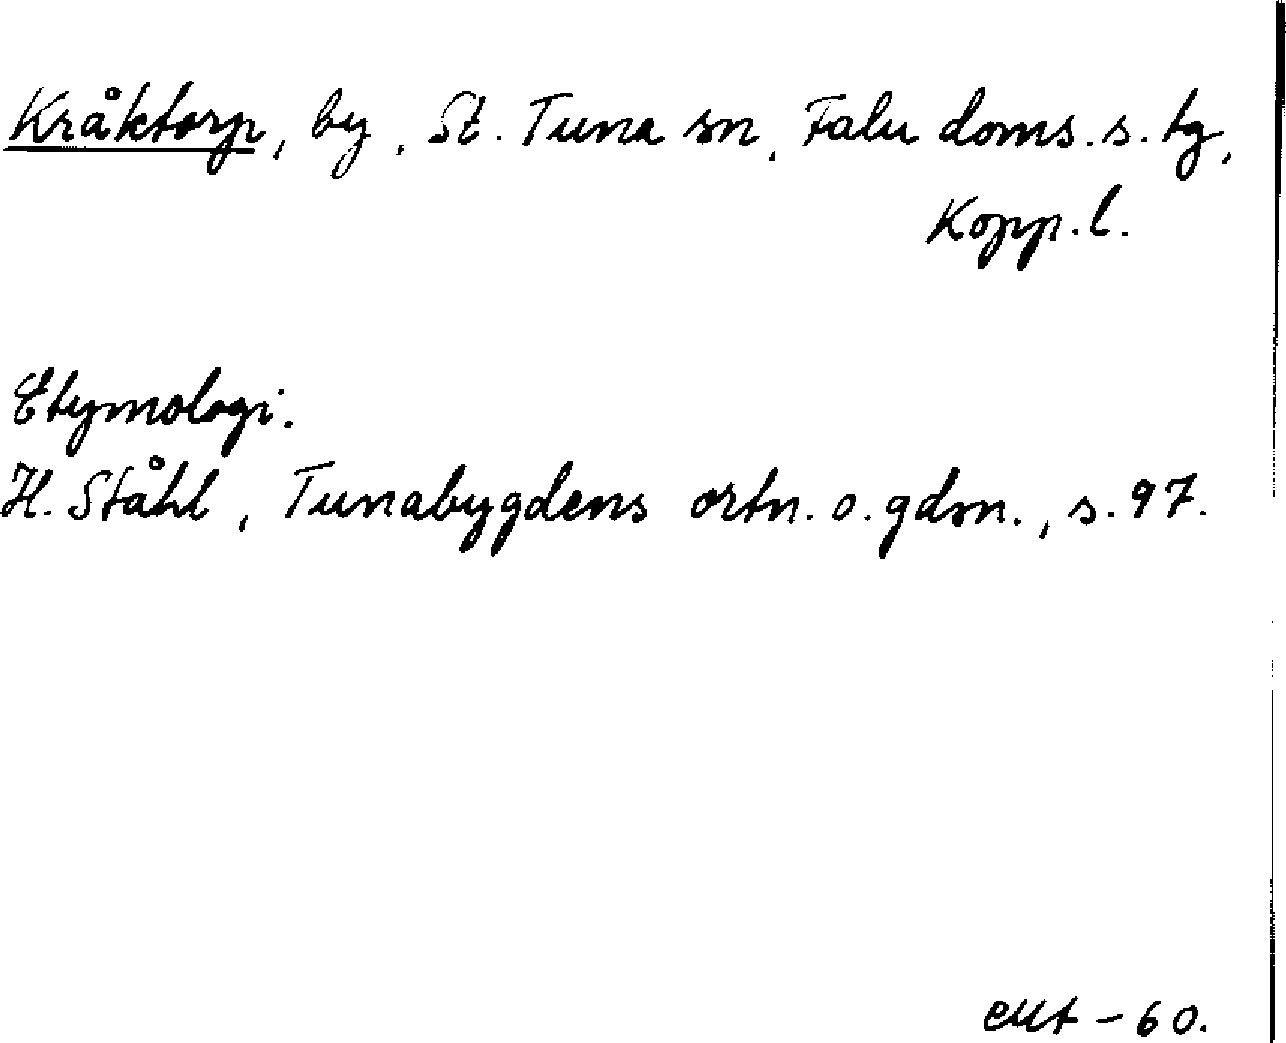 Kråktorp, by, St. Tuna sn, Falu doms. s. tg,
Kopp. l.
Etymologi.
H. Ståhl, Tunabygdens ortn. o. gdsn., s. 97.
-60.